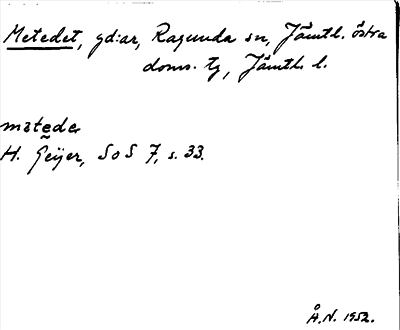 Metedet, gd:ar, Ragunda sn, Jämtl. östra
doms. tg, Jämtl. l.
mateder
H. Geijer, SoS 7, s. 33.
Å.N. 1952.